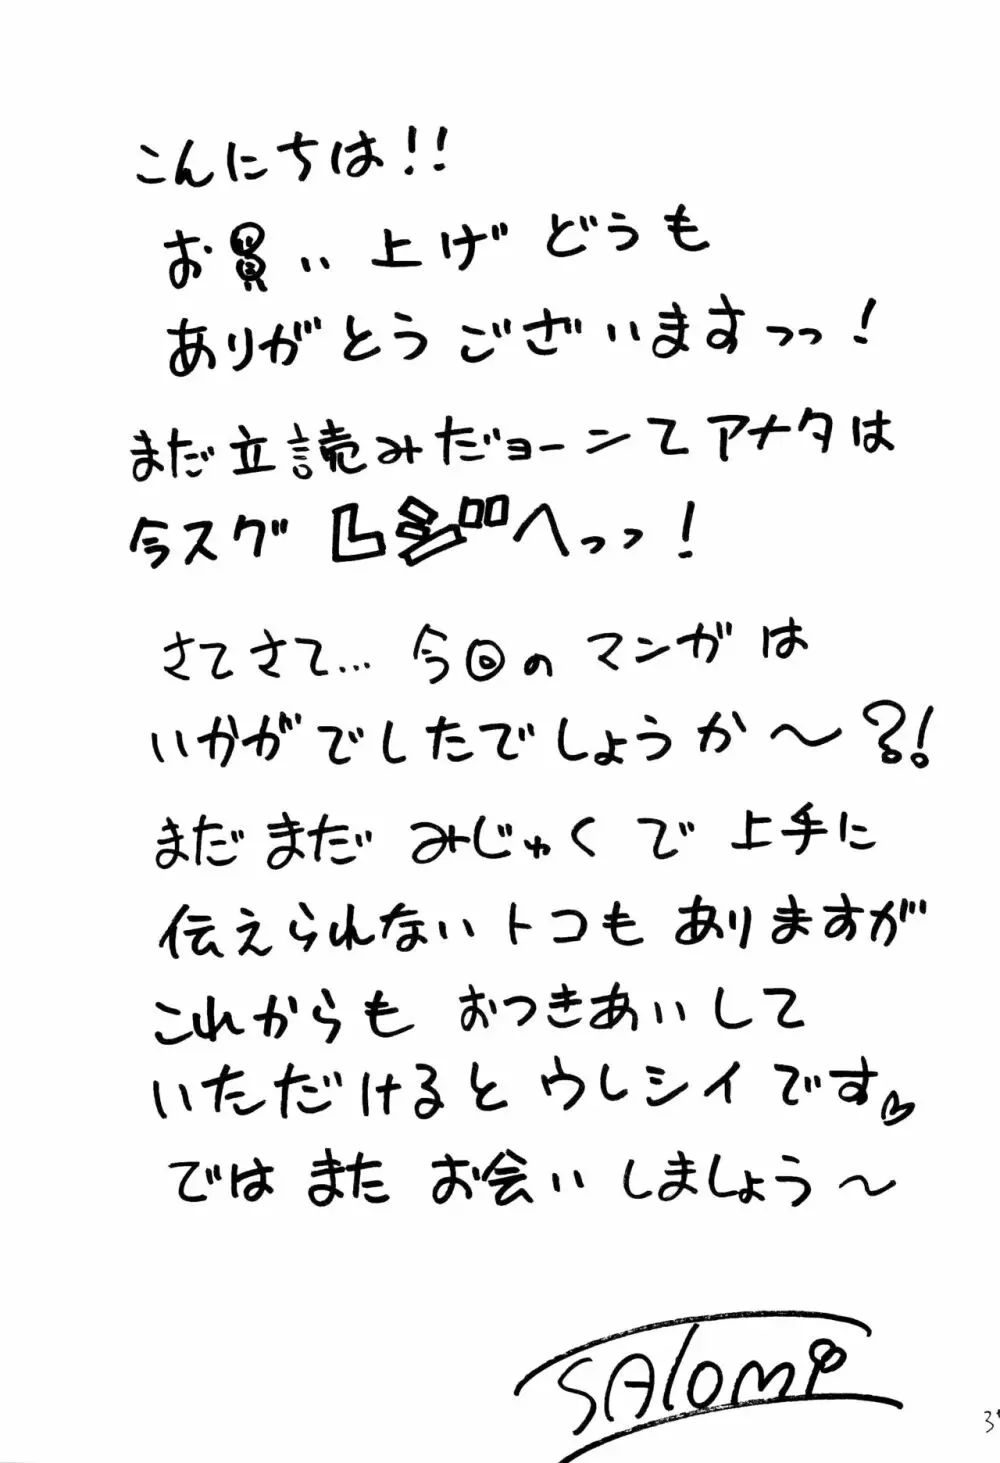 こんにちは!!
お買い上げ どうも
ありがとう ございますっっ!
まだ立読みだョーンて アナタは
今スグ レジへっっ!
さてさて… 今回の マンガは
いかがでしたでしょうか〜?!
まだまだ みじゃくで 上手に
伝えられないトコも ありますが
これからも おつきあいして
いただけると ウレシイです♡
では また お会い しましょう〜
SAlomi